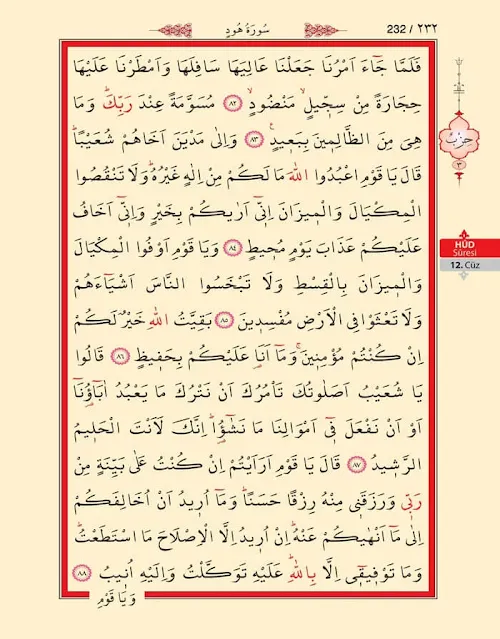 سُورَةُ هُودٍ
232 / ٢٣٢
فَلَمَّا جَٓاءَ اَمْرُنَا جَعَلْنَا عَالِيَهَا سَافِلَهَا وَاَمْطَرْنَا عَلَيْهَا
حِجَارَةً مِنْ سِجّ۪يلٍ مَنْضُودٍۙ ﴿٨٢﴾ مُسَوَّمَةً عِنْدَ رَبِّكَۜ وَمَا
هِيَ مِنَ الظَّالِم۪ينَ بِبَع۪يدٍ۟ ﴿٨٣﴾ وَاِلٰى مَدْيَنَ اَخَاهُمْ شُعَيْبًاۜ
قَالَ يَا قَوْمِ اعْبُدُوا اللّٰهَ مَا لَكُمْ مِنْ اِلٰهٍ غَيْرُهُۜ وَلَا تَنْقُصُوا
الْمِكْيَالَ وَالْم۪يزَانَ اِنّ۪ٓي اَرٰيكُمْ بِخَيْرٍ وَاِنّ۪ٓي اَخَافُ
عَلَيْكُمْ عَذَابَ يَوْمٍ مُح۪يطٍ ﴿٨٤﴾ وَيَا قَوْمِ اَوْفُوا الْمِكْيَالَ
وَالْم۪يزَانَ بِالْقِسْطِ وَلَا تَبْخَسُوا النَّاسَ اَشْيَٓاءَهُمْ
وَلَا تَعْثَوْا فِي الْاَرْضِ مُفْسِد۪ينَ ﴿٨٥﴾ بَقِيَّتُ اللّٰهِ خَيْرٌ لَكُمْ
اِنْ كُنْتُمْ مُؤْمِن۪ينَۚ وَمَٓا اَنَا۬ عَلَيْكُمْ بِحَف۪يظٍ ﴿٨٦﴾ قَالُوا
يَا شُعَيْبُ اَصَلٰوتُكَ تَأْمُرُكَ اَنْ نَتْرُكَ مَا يَعْبُدُ اٰبَٓاؤُ۬نَٓا
اَوْ اَنْ نَفْعَلَ ف۪ٓي اَمْوَالِنَا مَا نَشٰٓؤُ۬اۜ اِنَّكَ لَاَنْتَ الْحَل۪يمُ
الرَّش۪يدُ ﴿٨٧﴾ قَالَ يَا قَوْمِ اَرَاَيْتُمْ اِنْ كُنْتُ عَلٰى بَيِّنَةٍ مِنْ
رَبّ۪ي وَرَزَقَن۪ي مِنْهُ رِزْقًا حَسَنًاۜ وَمَٓا اُر۪يدُ اَنْ اُخَالِفَكُمْ
اِلٰى مَٓا اَنْهٰيكُمْ عَنْهُۜ اِنْ اُر۪يدُ اِلَّا الْاِصْلَاحَ مَا اسْتَطَعْتُۜ
وَمَا تَوْف۪يق۪ٓي اِلَّا بِاللّٰهِۜ عَلَيْهِ تَوَكَّلْتُ وَاِلَيْهِ اُن۪يبُ ﴿٨٨﴾
وَيَا قَوْمِ
حزب
٣
HÛD
Sûresi
12. Cüz